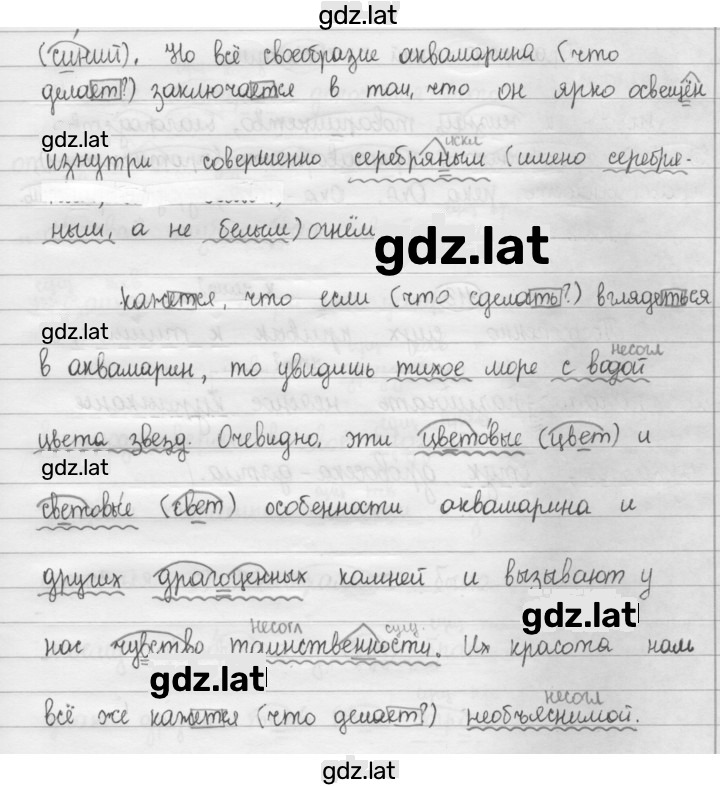 gdz.lat
(синий). Но всё своеобразие аквамарина (что
делает?) заключается в том, что он ярко освещён
gdz.lat
искл
изнутри совершенно серебряным (имено серебря-
ным, а не белым) огнём
gdz.lat
Кажется, что если (что сделать?) вглядеться
gdz.lat
несогл
в аквамарин, то увидишь тихое море с водой
цвета звезд. Очевидно, эти цветовые (цвет) и
gdz.lat
световые (свет) особенности аквамарина и
других драгоценных камней и вызывают у
gdz.lat
несогл сущ.
нас чувство таинственности. Их красота нам
gdz.lat
несогл
всё же кажется (что делает?) необъяснимой.
gdz.lat